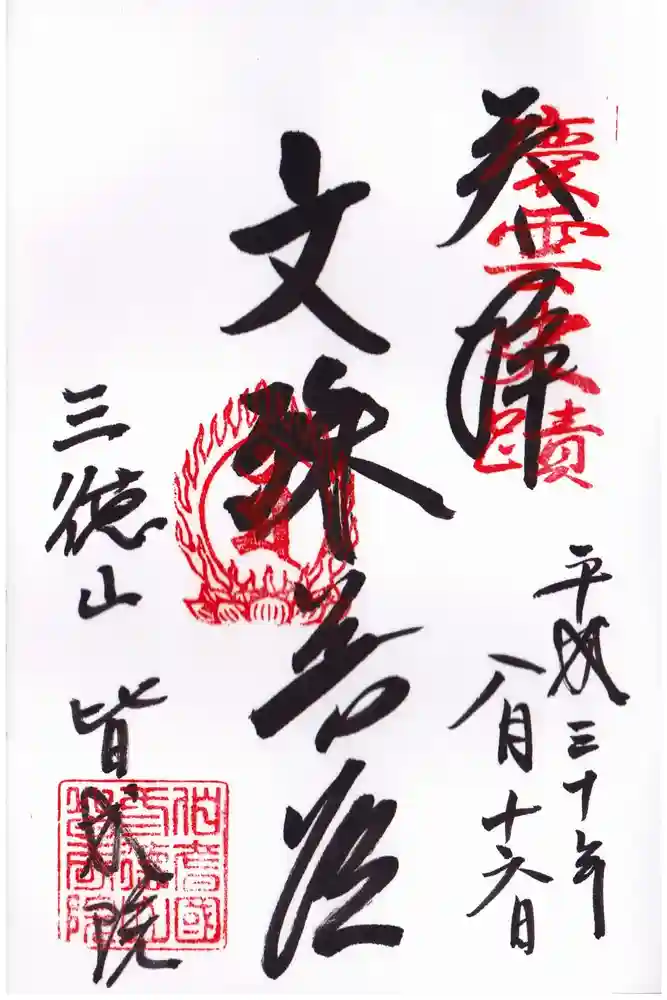 奉拝
平成三十年
八月十六日
文殊菩薩
三徳山 皆成院
伯耆國
三徳山
皆成院